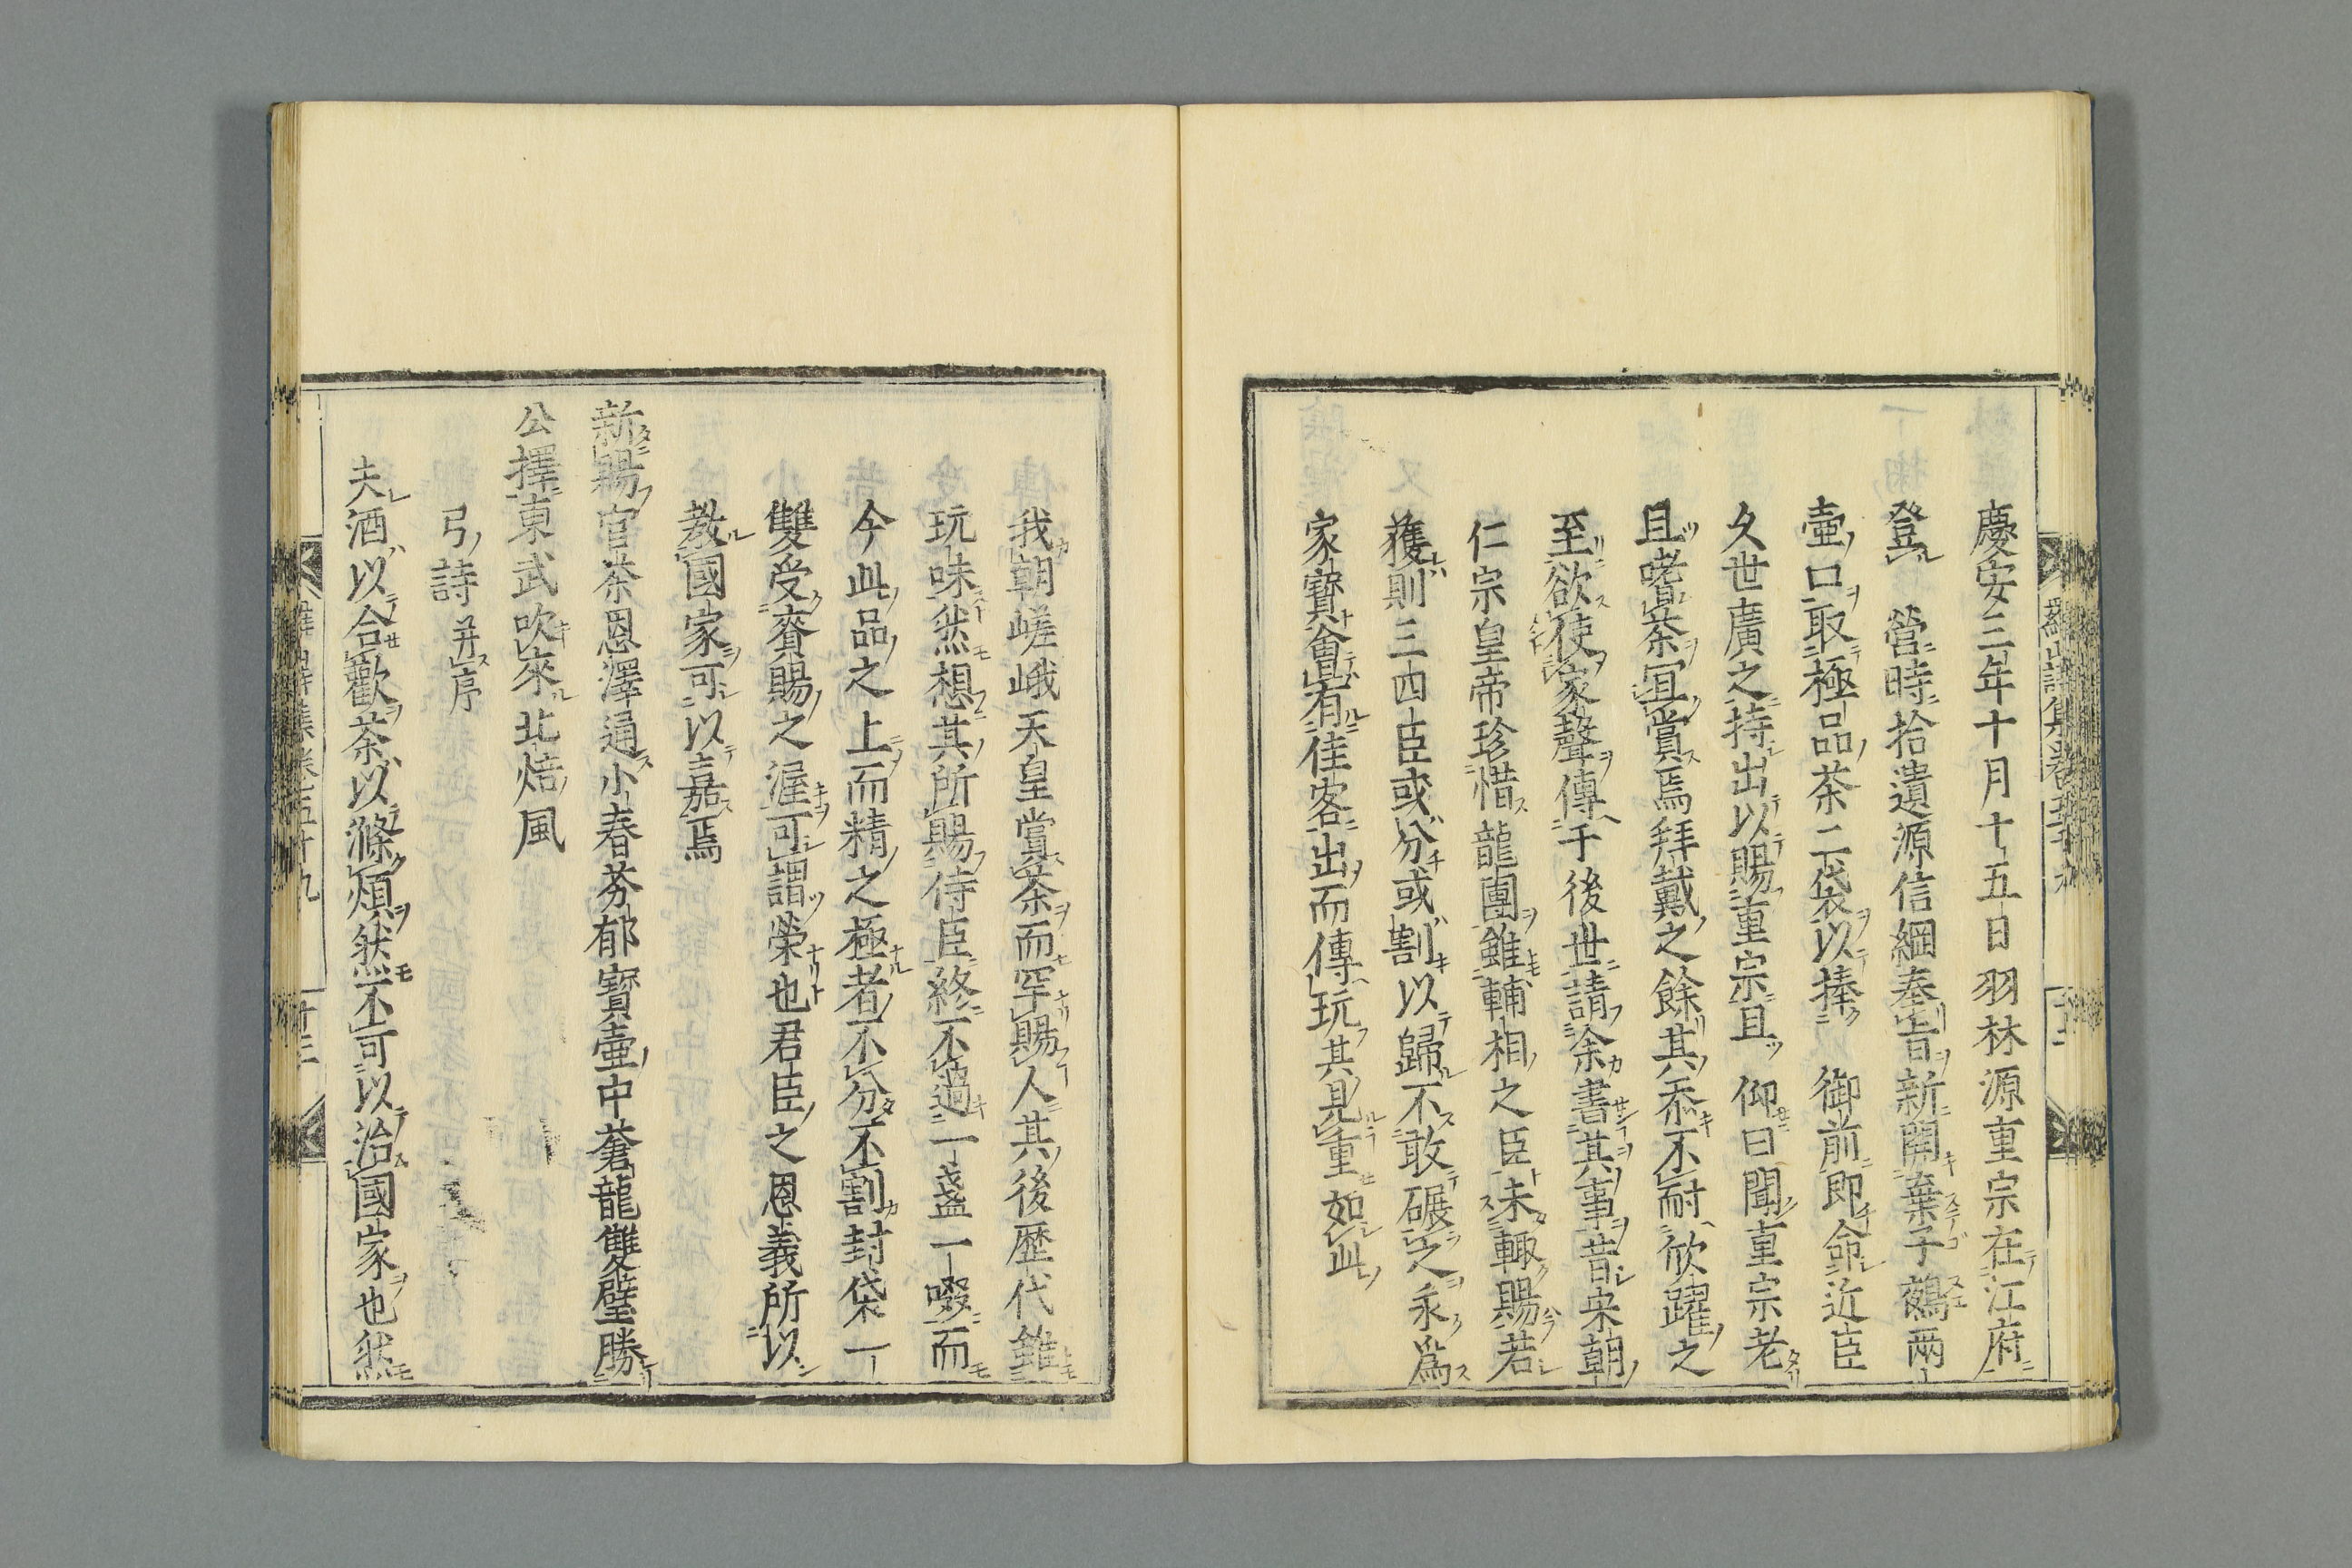 慶安三年十月十五日羽林源重宗在江府
登營時拾遺源信綱奉旨新開棄子鵎兩
壺口取極品茶二袋以捧御前即命近臣
久世廣之持出以賜重宗且仰曰聞重宗老
且嗜茶宜賞焉拜戴之餘其忝不耐欣躍之
至欲使家聲傳于後世請余書其事昔宋朝
仁宗皇帝珍惜龍團雖輔相之臣未輙賜若
獲則三四臣或分或割以歸不敢碾之永爲
家寶會有佳客出而傳玩其見重如此
我朝嵯峨天皇賞茶而罕賜人其後歷代雖
玩味然想其所賜侍臣終不過一盞一啜而
今此品之上而精之極者不分不割封袋一
雙受賚賜之渥可謂榮也君臣之恩義所以
教國家可以嘉焉
新賜官茶恩澤逼小春芬郁寶壺中蒼龍雙璧勝
公擇東武吹來北焙風
弓詩并序
夫酒以合歡茶以滌煩然不可以治國家也然